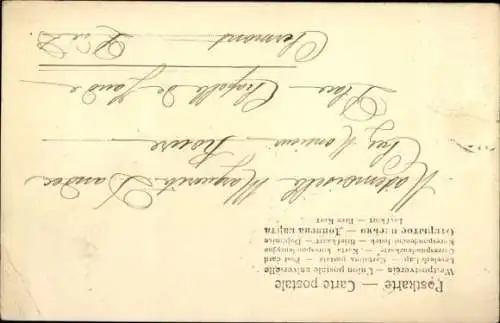 Postkarte — Carte postale
Weltpostverein — Union postale universelle
Levelező-Lap. — Cartolina postale — Post card
Korrespondenzkarte — Karta korespondencyjna
Korespondenční lístek — Briefkaart — Dopisnice
Открытое письмо — Дописна карта
Brefkort — Brev Kort
Mademoiselle Marguerite
Chez Monsieur
Place Chapelle de Jaude
Clermont P. de D.